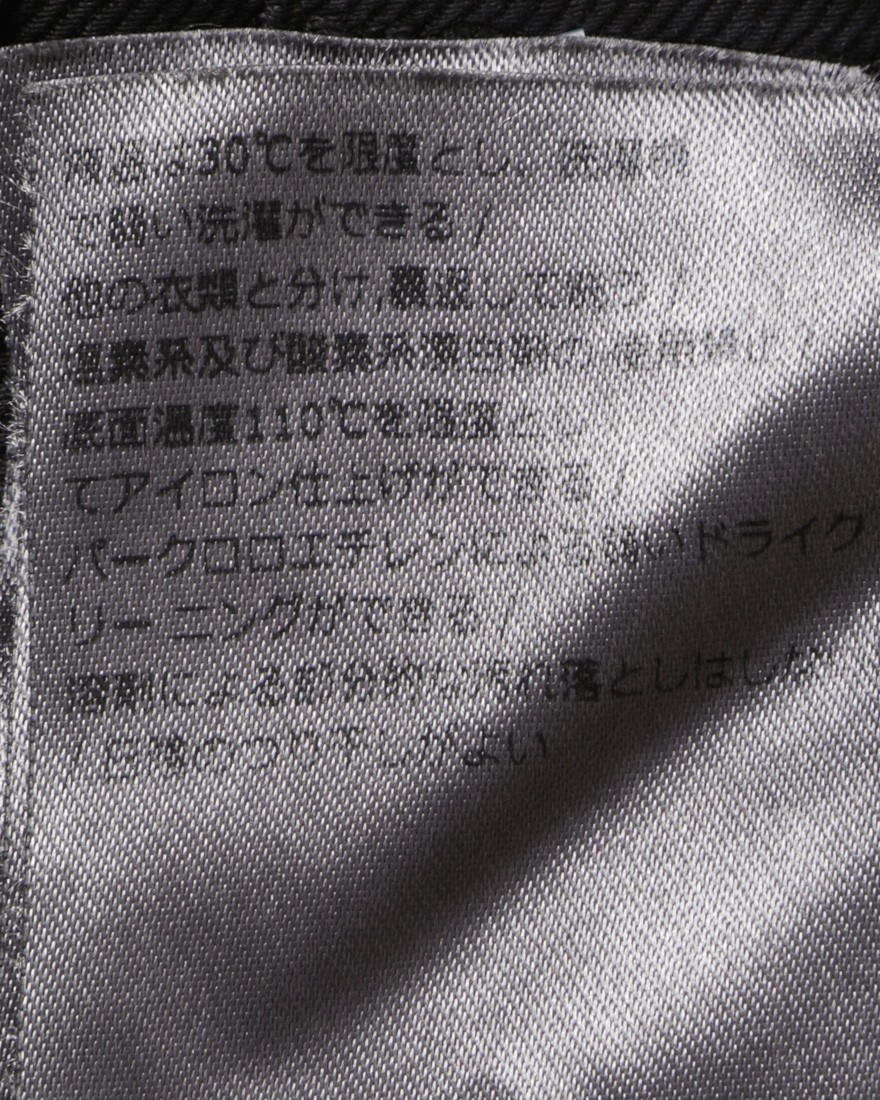 液温は30℃を限度とし、洗濯機
で弱い洗濯ができる /
他の衣類と分け,裏返して洗う /
塩素系及び酸素系漂白剤の使用禁止 /
底面温度110℃を限度とし
てアイロン仕上げができる /
パークロロエチレンによる弱いドライク
リーニングができる /
溶剤による部分的な汚れ落としはしない
/ 日陰のつり干しがよい